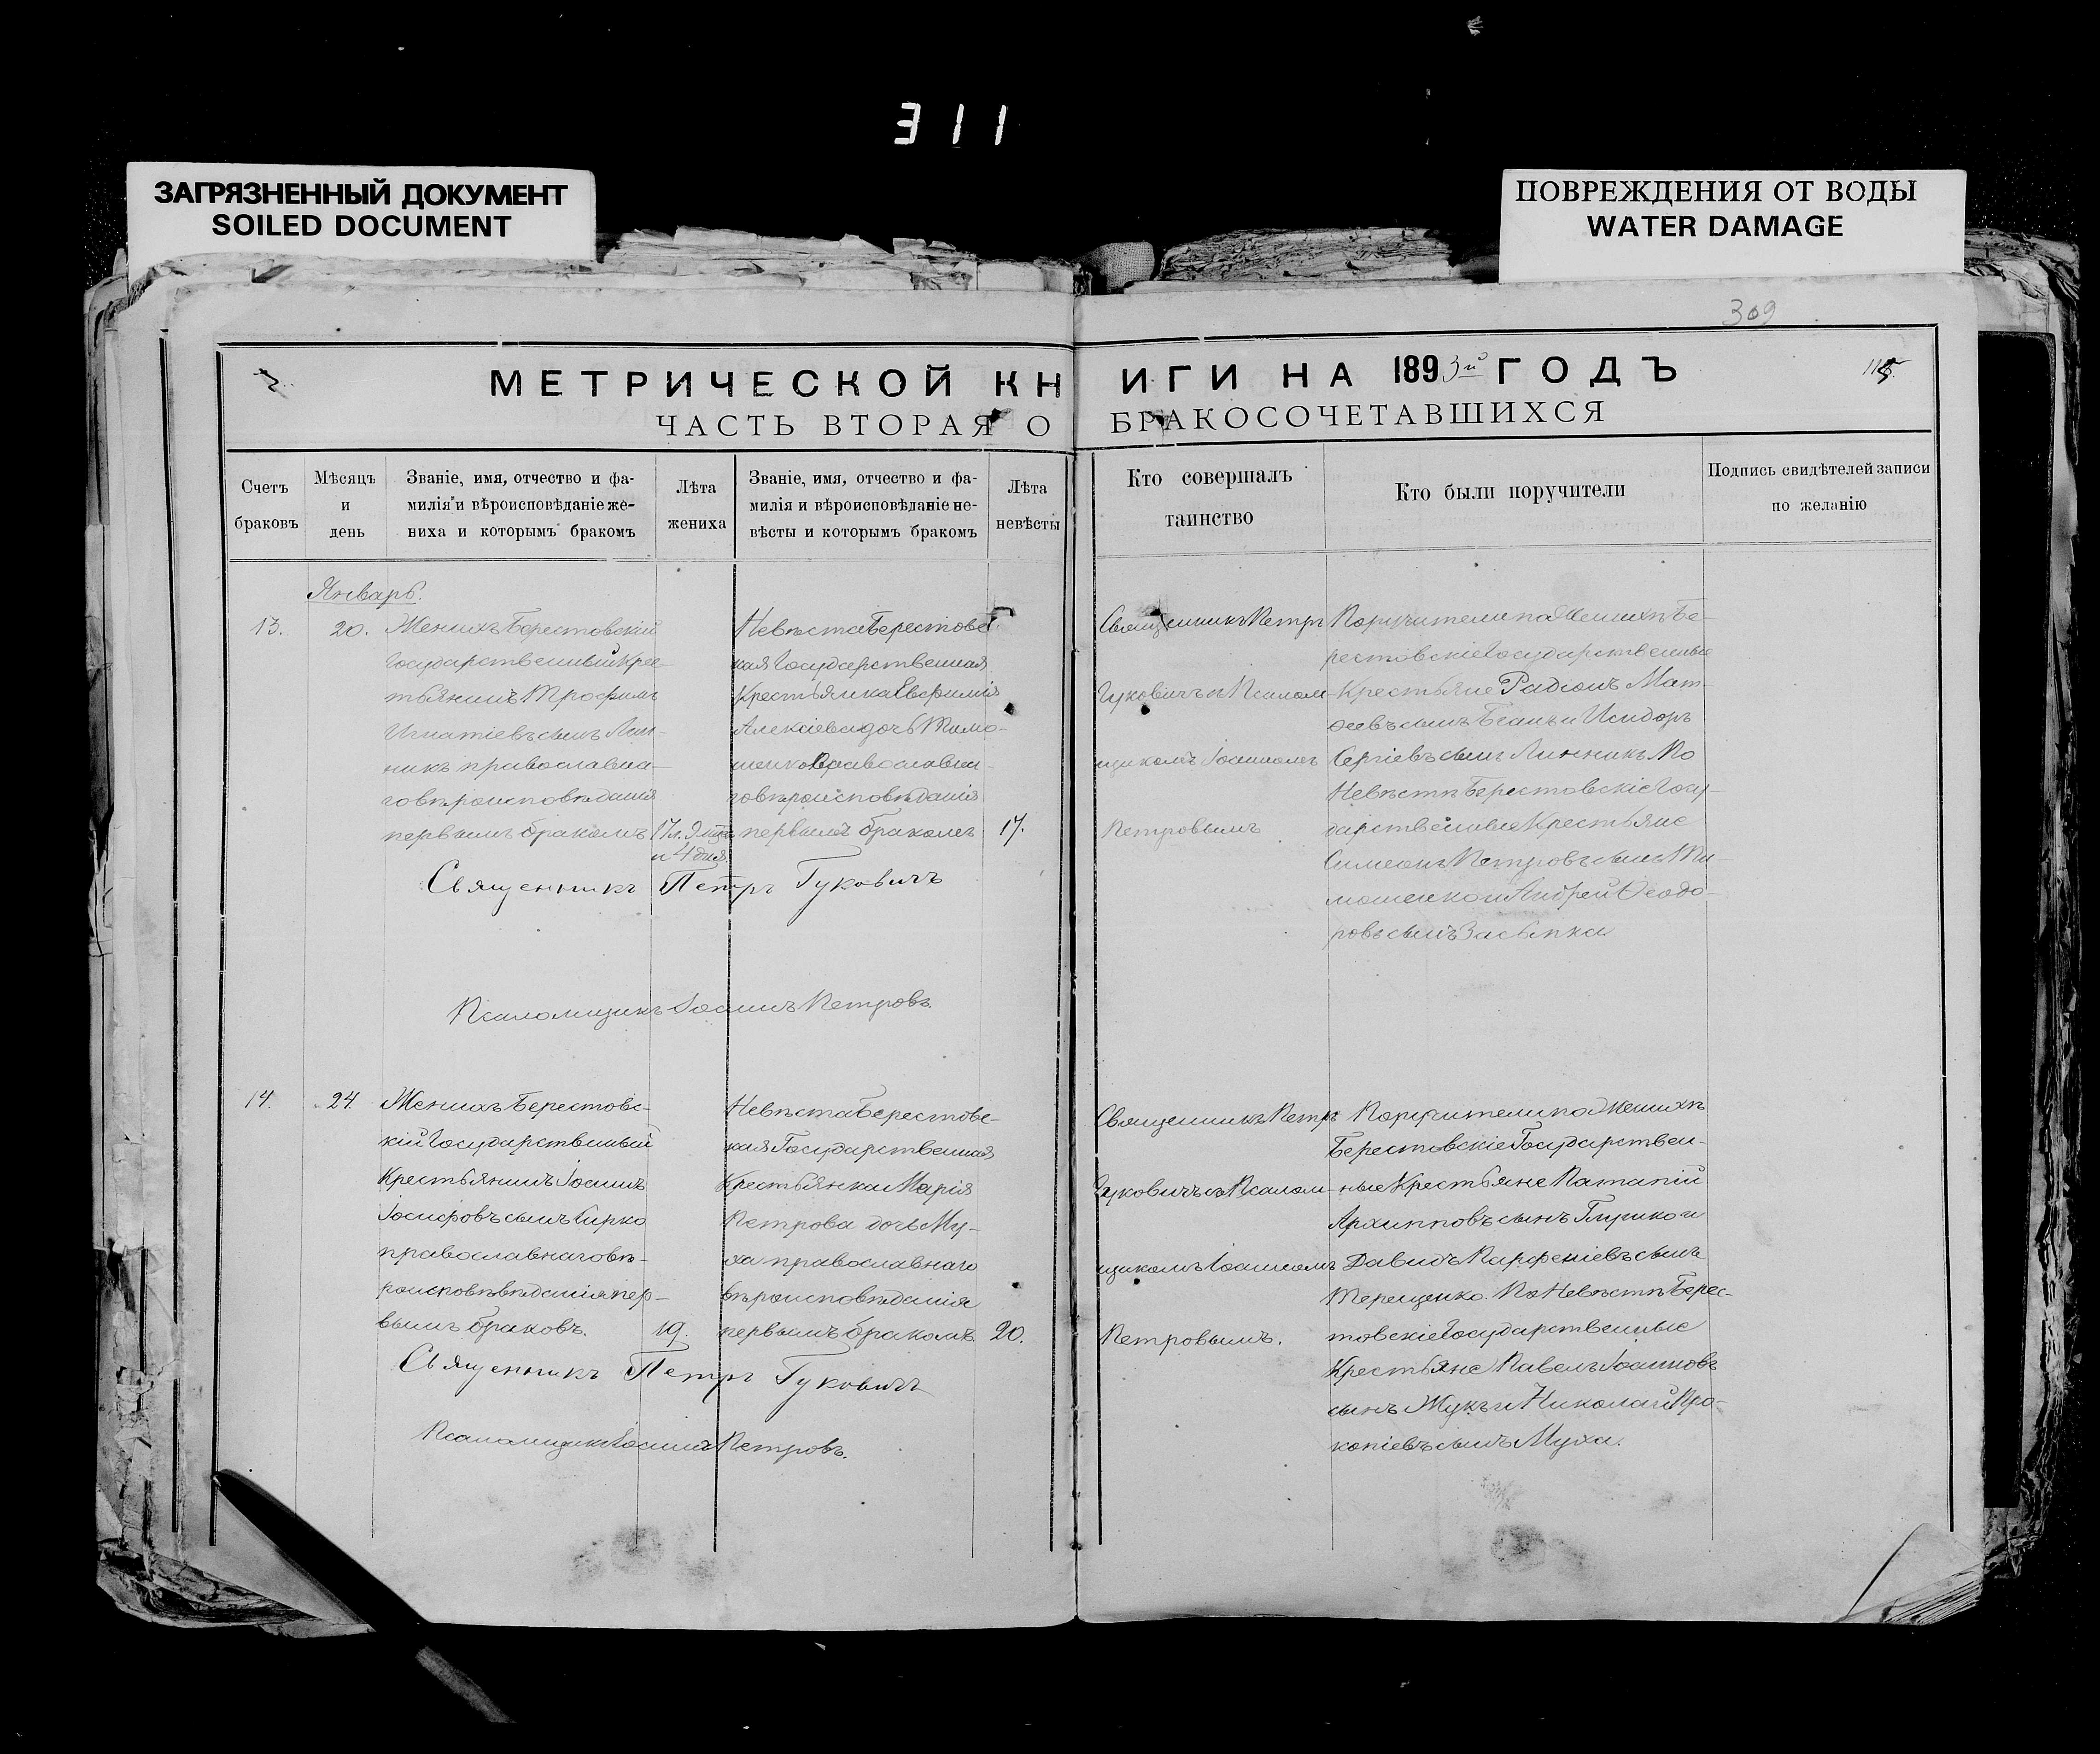 311
ЗАГРЯЗНЕННЫЙ ДОКУМЕНТ
SOILED DOCUMENT
ПОВРЕЖДЕНИЯ ОТ ВОДЫ
WATER DAMAGE
309
МЕТРИЧЕСКОЙ КНИГИ НА 1893й ГОДЪ
115.
ЧАСТЬ ВТОРАЯ О БРАКОСОЧЕТАВШИХСЯ
Счетъ
браковъ
Мѣсяцъ
и
день
Званіе, имя, отчество и фа-
милія и вѣроисповѣданіе же-
ниха и которымъ бракомъ
Лѣта
жениха
Званіе, имя, отчество и фа-
милія и вѣроисповѣданіе не-
вѣсты и которымъ бракомъ
Лѣта
невѣсты
Кто совершалъ
таинство
Кто были поручители
Подпись свидѣтелей записи
по желанію
Январь.
13.
20.
Женихъ Берестовскій
Государственный Крес-
тьянинъ Трофимъ
Игнатіевъ сынъ Лин-
никъ православна-
го вѣроисповѣданія
первымъ бракомъ
17 л. 9 мц.
и 4 дня.
Невѣста Берестовс-
кая Государственная
Крестьянка Евфимія
Алексіева дочь Тимо-
шенкова Православна-
го вѣроисповѣданія
первымъ бракомъ
17.
Священникъ Петръ
Гуковичъ съ Псалом-
щикомъ Іоанномъ
Петровымъ
Поручители по Женихѣ Бе-
рестовскіе Государственные
Крестьяне Радіонъ Мат-
ѳеевъ сынъ и Исидоръ
Сергіевъ сынъ Линникъ По
Невѣстѣ Берестовскіе Госу-
дарственные Крестьяне
Симеонъ Петровъ сынъ Ти-
мошенко и Андрей Ѳеодо-
ровъ сынъ Засыпка
Священникъ Петръ Гуковичъ
Псаломщикъ Іоаннъ Петровъ.
14.
24.
Женихъ Берестовс-
кій Государственный
Крестьянинъ Іоаннъ
Іосифовъ сынъ Сирко
православнаго вѣ-
роисповѣвѣданія пер-
вымъ браковъ.
19.
Невѣста Берестовс-
кая Государственная
Крестьянка Марія
Петрова дочь Му-
ха православнаго
вѣроисповѣданія
первымъ бракомъ
20.
Священникъ Петръ
Гуковичъ съ Псалом-
щикомъ Іоанномъ
Петровымъ.
Поручители по Женихѣ
Берестовскіе Государствен-
ные Крестьяне Патапій
Архипповъ сынъ и
Давидъ Парфеніевъ сынъ
Терещенко. По Невѣстѣ Берес-
товскіе Государственные
Крестьяне Павелъ Іоанновъ
сынъ Жукъ и Николай Про-
копіевъ сынъ Муха.
Священникъ Петръ Гуковичъ
Псаломщикъ Іоаннъ Петровъ.